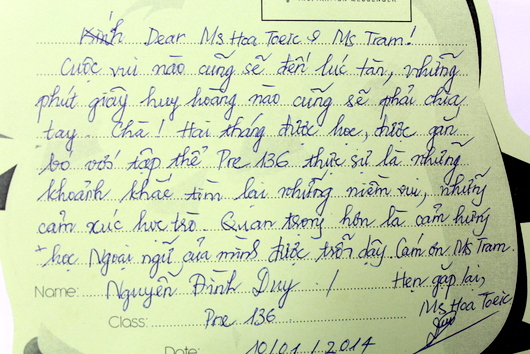 Dear Ms Hoa Toeic & Ms Tram!
Cuộc vui nào cũng sẽ đến lúc tàn, những
phút giây huy hoàng nào cũng sẽ phải chia
tay. Chà! Hai tháng được học, được gắn
bó với tập thể Pre 136 thực sự là những
khoảnh khắc tìm lại những niềm vui, những
cảm xúc học trò. Quan trọng hơn là cảm hứng
học Ngoại ngữ của mình được trỗi dậy. Cám ơn Ms Tram.
Name: Nguyễn Đình Duy / Hẹn gặp lại,
Ms Hoa Toeic
Class: Pre 136
Date: 10/01/2014